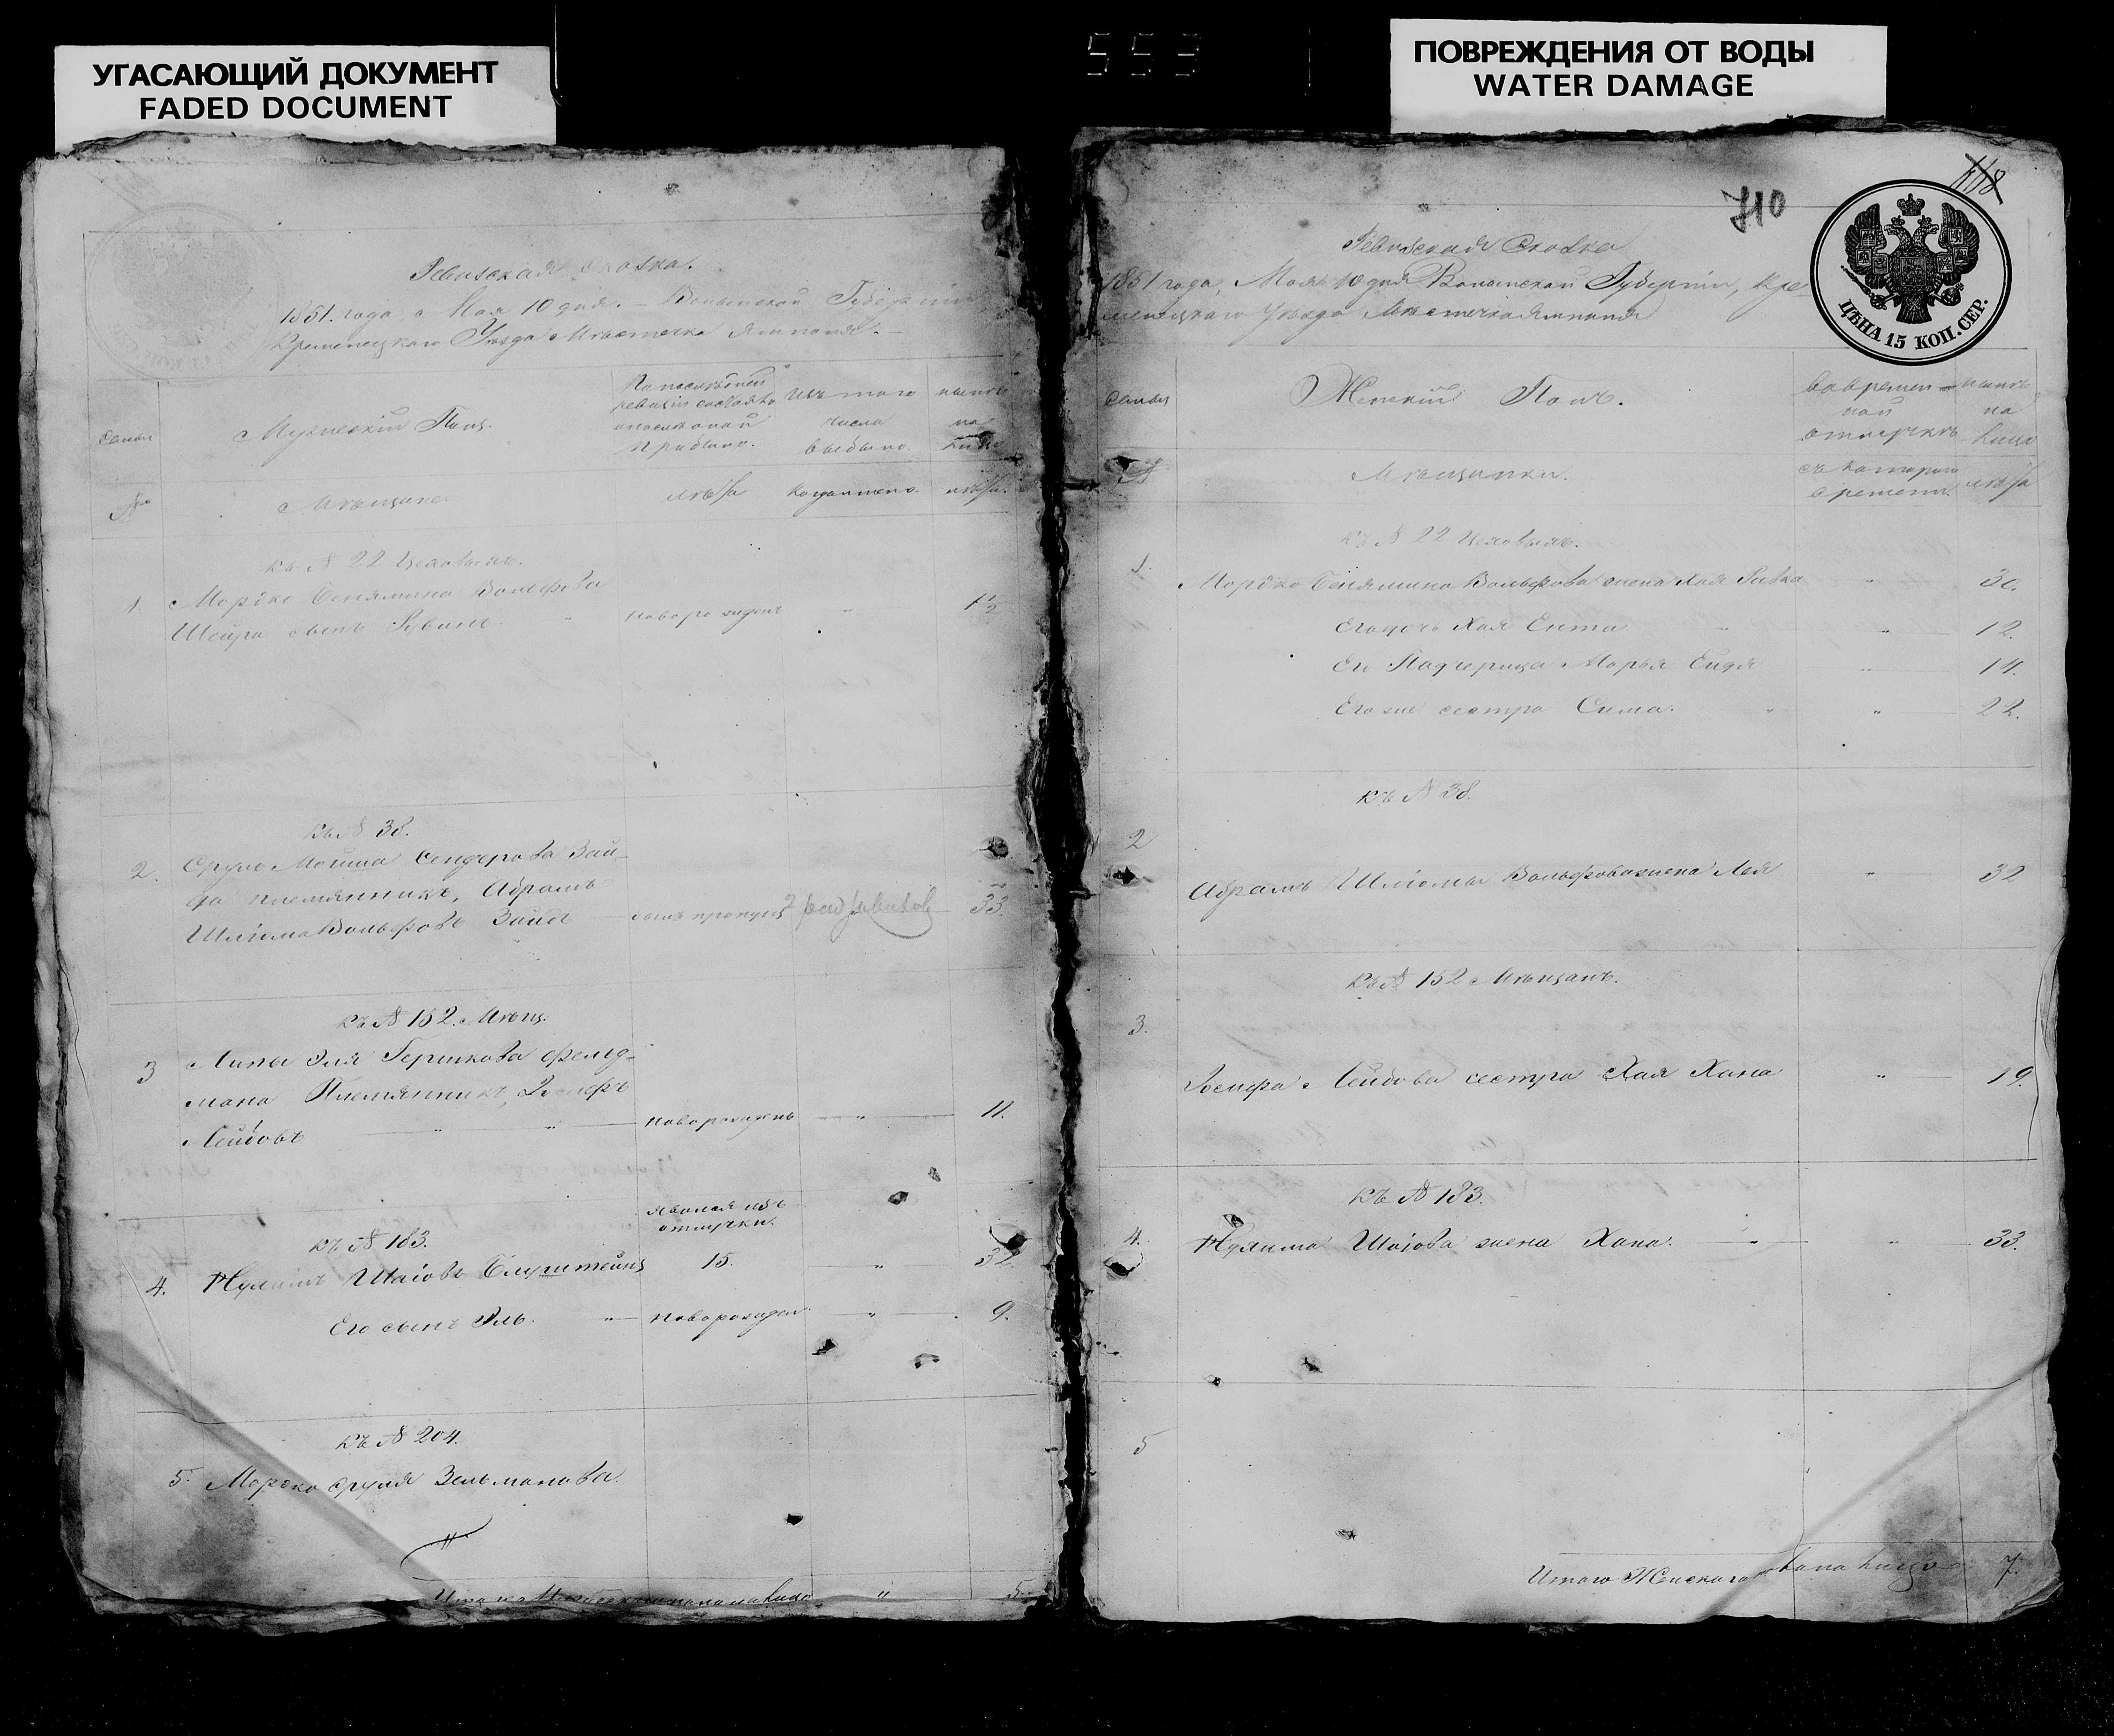 УГАСАЮЩИЙ ДОКУМЕНТ
FADED DOCUMENT
553
ПОВРЕЖДЕНИЯ ОТ ВОДЫ
WATER DAMAGE
Ревизская сказка.
1851. года, Мая 10 дня. — Волынской Губерніи
Кременецкаго Уѣзда Мѣстечка Ямполя. —
Семьи
Мужескій Полъ.
По послѣдней
ревизіи состояло
и послѣ оной
прибыло.
Изъ того
числа
выбыло.
нынѣ
на
лицо
№
Мѣщане.
лѣта
когда именно.
лѣта.
къ № 22 Цеховымъ.
1. Мордко Беньямина Вольфова
Шейра сынъ Рувинъ
новорожден
"
1½
къ № 38.
2. Сруль Мошка Сендерова Зай-
да племянникъ, Абрамъ
Шліома Вольфовъ Зайда
былъ пропущ
33.
къ № 152. Мѣщ.
3 Липы Эля Гершкова Фельд-
мана Племянникъ, Іосифъ
Лейбовъ
новорожденъ
"
11.
явился изъ
отлучки.
къ № 183.
4. Нухимъ Шаіовъ
15.
"
32
Его сынъ Эль.
новорожден.
"
9.
къ № 204.
5. Мордко Сруля Зельманова.
Итого Мужеска пола на лицо
"
5.
118
710
ЦѢНА 15 КОП. СЕР.
Ревизская Сказка
1851 года, Мая 10 дня Волынской Губерніи, Кре-
менецкаго Уѣзда Мѣстечка Ямполя
Семьи
Женскій Полъ.
во времен-
ной
отлучкѣ
нынѣ
на
лицо
№
Мѣщанки.
съ котораго
времени.
лѣта
къ № 22 Цеховымъ.
1.
Мордко Беньямина Вольфова жена Хая Ривка
"
30.
Его дочь Хая Ента
"
12.
Его Падчерица Марья Ейдя
"
14.
Его же сестра Сима.
"
22.
къ № 38.
2
Абрамъ Шліомы Вольфова жена Лея
"
32
къ № 152 Мѣщанъ.
3.
Іосифа Лейбова сестра Хая Хана
"
19.
къ № 183.
4. Нухима Шаіова жена Хана.
"
33.
5
Итого Женскаго пола на лицо
7.